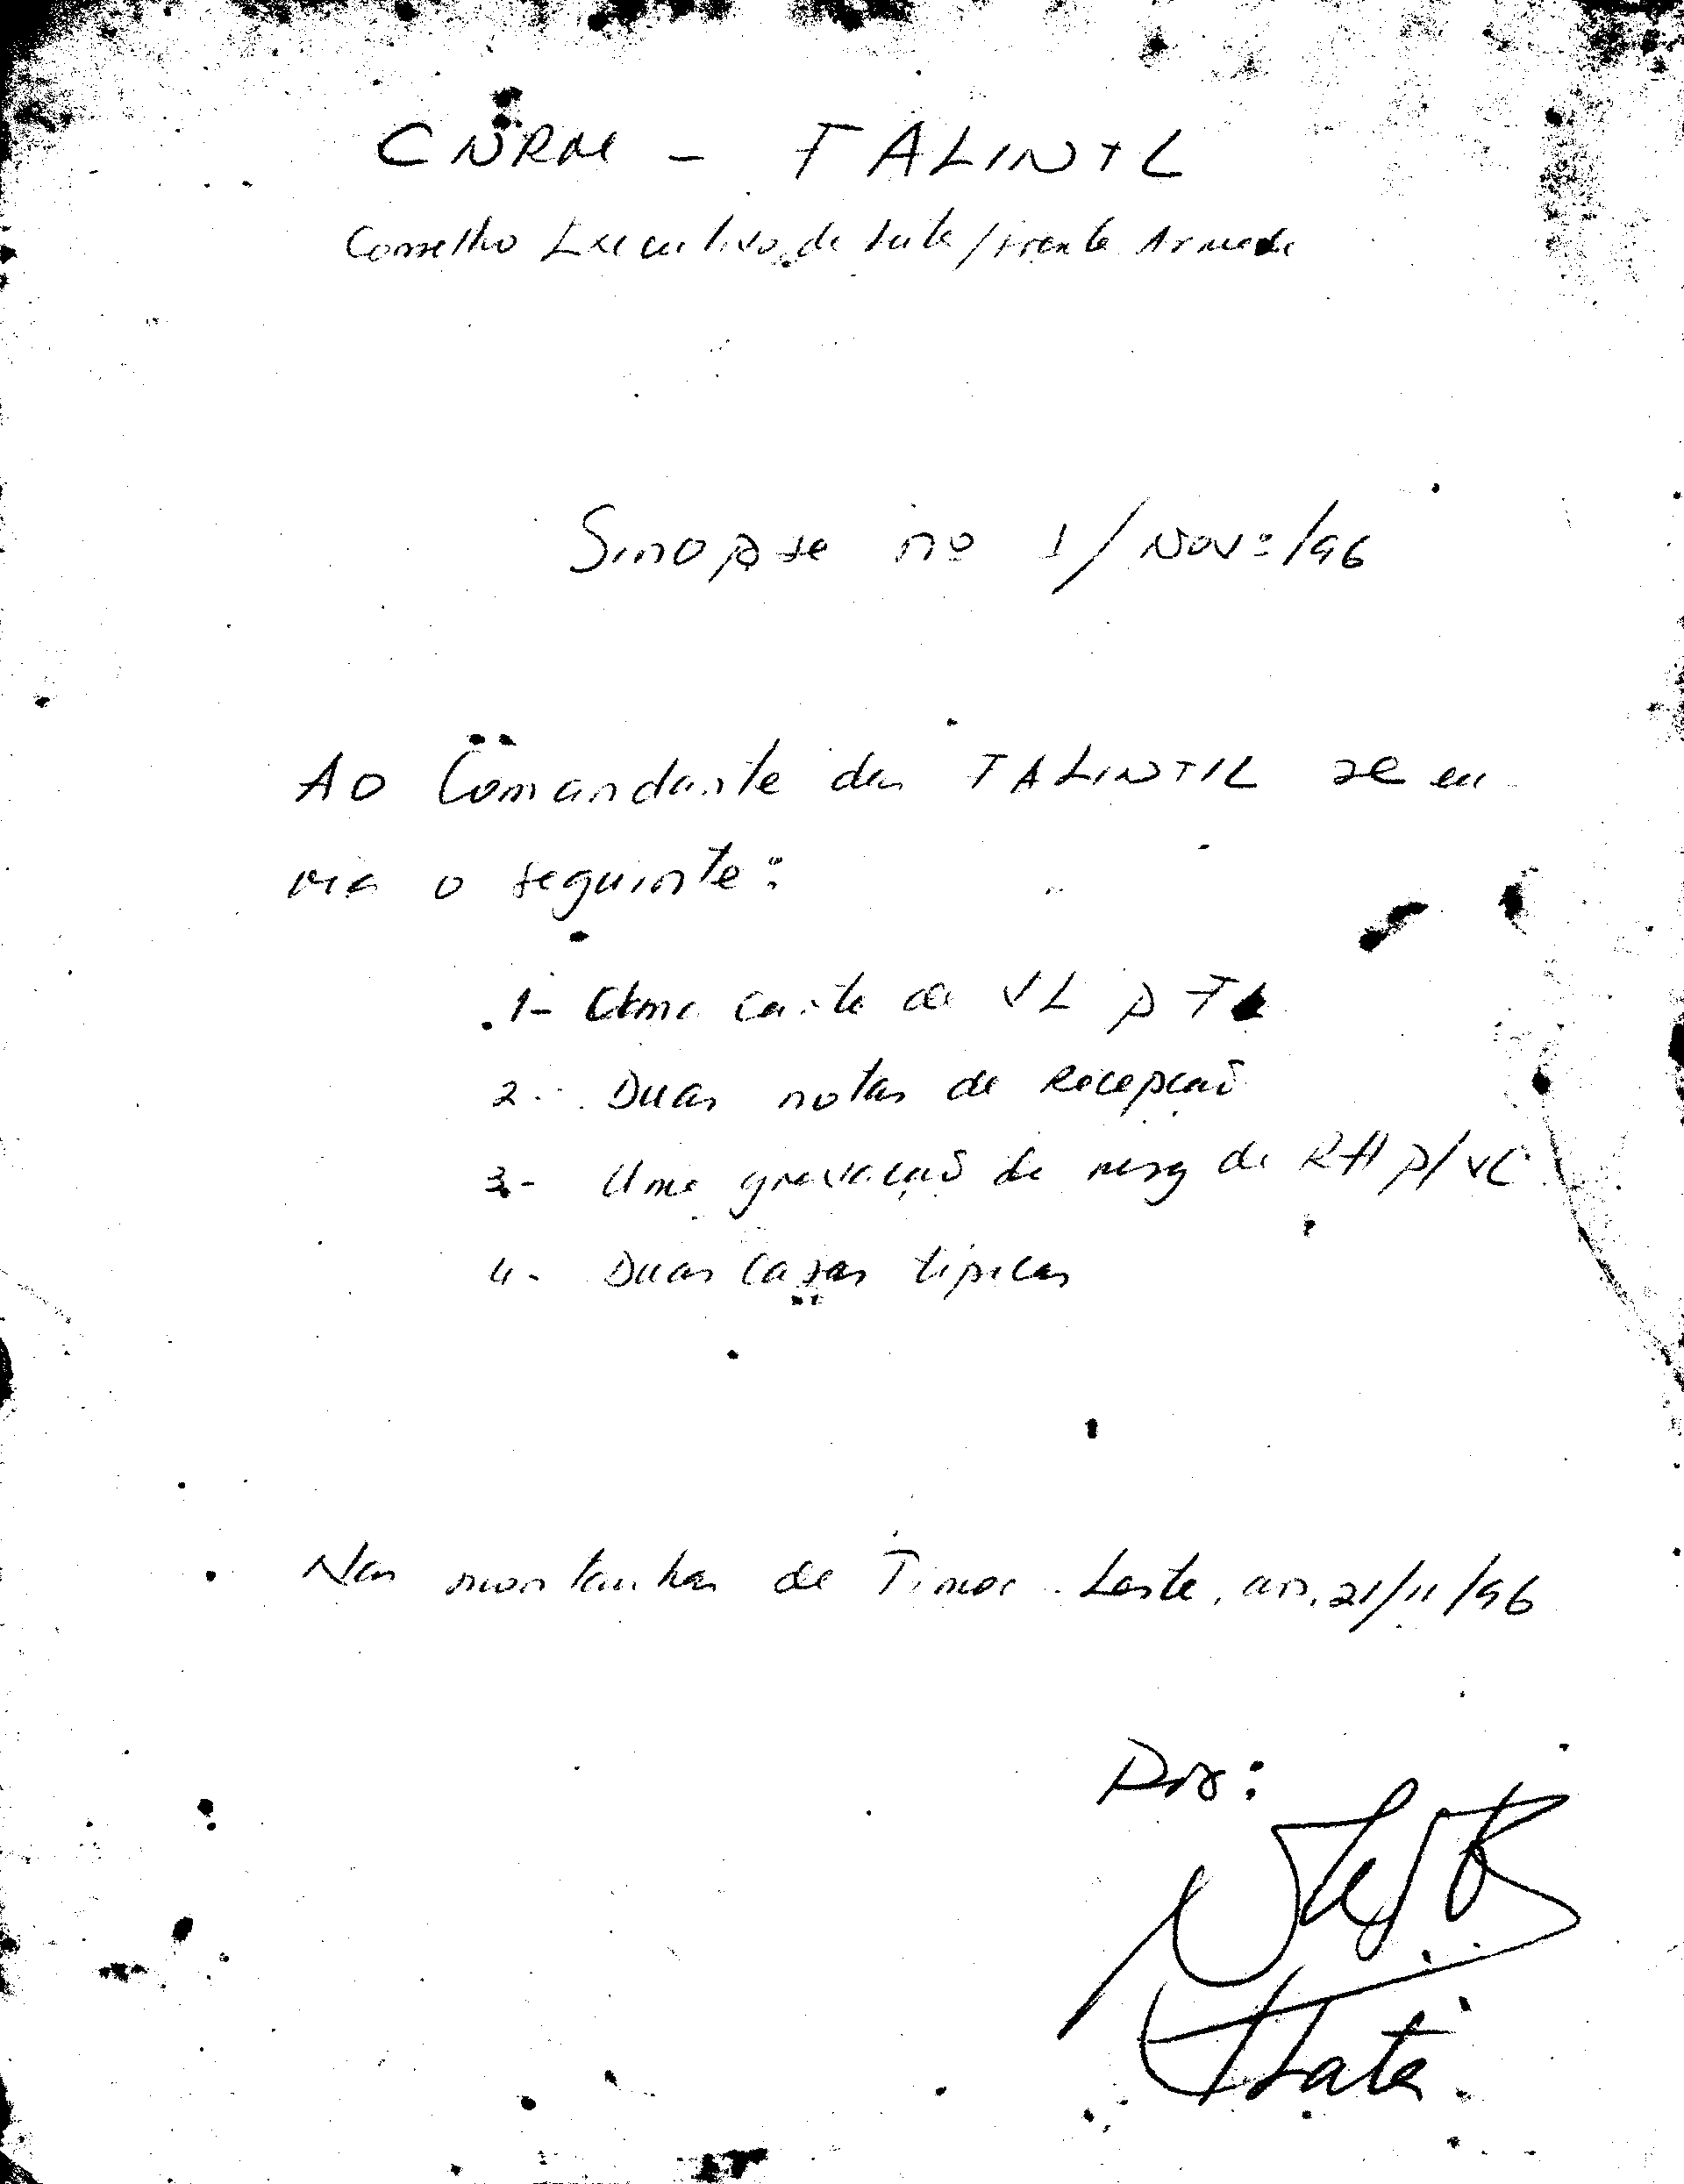 CNRM - FALINTIL
Conselho Executivo de Luta/Frente Armada
Sinopse nº 1/Novº/96
Ao Comandante das FALINTIL se en
via o seguinte:
1- Uma carta de VL p
2- Duas notas de Recepção
3- Uma gravação de msg de RH p/ VC
4- Duas Casas tipicas
Nas montanhas de Timor-Leste, aos, 21/11/96
Por: